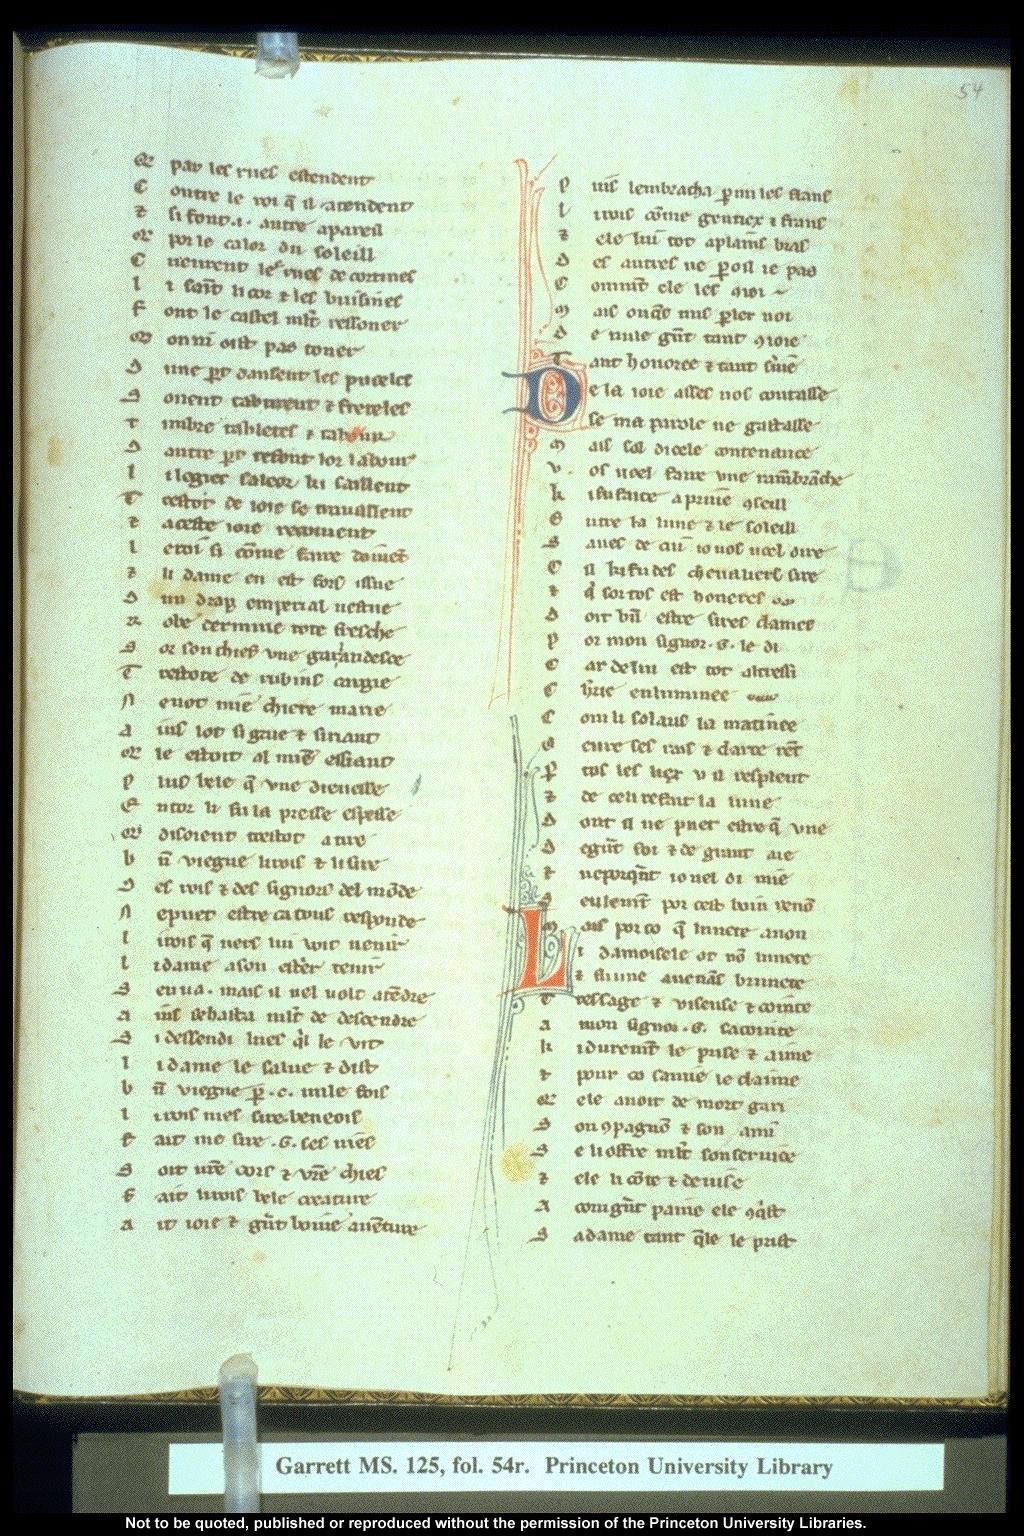 54
Et par les rues estendent
C ontre le roi q̃ il atendent
⁊ si font .i. autre apareil
Et por le calor du soleill
C ueurent les rues de cortines
l i sait li cor ⁊ les buisines
F ont le castel ml̃t ressoner
Q on ni oist pas toner
D une p̲t dansent les puceles
S onent tabureut ⁊ freteles
T imbre tabletes ⁊ tabour
D autre p̲t refont lor labour
l i legier saleor ki saillent
T restot de ioie se trauillent
⁊ a ceste ioie
l e roi si cõme faire doiuẽt
⁊ li dame en est fors issue
D un drap emperial uestue
R obe dermine tote fresche
S or son chief vne garlandesce
T restote de rubins
N euot mie chiere marie
A ins lot si gaie ⁊ si riant
Q le estoit al miẽ essiant
P lus bele q̃ vne dieuesse
E ntor li fu la presse espesse
Q disoient trestot a tire
b ñ viegne li rois ⁊ li sire
D es rois ⁊ des signors del mõde
N e puet estre ca tous responde
l i rois q̃ uers lui voit uenir
l i dame a son estrer tenir
S en va . mais il nel volt atẽdre
A ins se hasta ml̃t de descendre
S i dessendi lues q̃l le vit
l i dame le salue ⁊ dist
b ñ viegne p̲ .c. mile fois
l i rois mes sire beneois
F ait mo sire .G. ses niés
S oit vr̃e cors ⁊ vr̃e chies
F ait li rois bele creature
A it ioie ⁊ grãt bone auẽture
P uis lembracha p̲mi les flans
l i rois cõme gentiex ⁊ frans
⁊ ele lui tot a plains bras
D es autres ne p̲oil ie pas
C omm̃t ele les
M ais onq̃s nus p̲ler noi
D e nule gẽt tant ꝯioie
T ant honoree ⁊ tant s̾uie
De la ioie asses uos contasse
se ma parole ne gastasse
M ais sol dicele contenance
V os uoel faire vne ramẽbrãche
k i fu faite a priuẽ ꝯseill
E ntre la lune ⁊ le soleill
S aues de cui io uos uoel dire
C il ki fu des cheualiers sire
⁊ q̃ sor tos est honeres
D oit bñ estre sires clames
P or mon signor .G. le di
C ar de lui est tot altressi
C h̾rie enluminee
C om li solaus la matinee
O eure ses rais ⁊ clarte rẽt
P̲ tos les liex v il resplent
⁊ de celi refait la lune
D ont il ne puet estre q̃ vne
D e grãt foi ⁊ de grant aie
⁊ neporq̃nt io nel di mie
S eulem̃t por cest boin renõ
M ais por co q̃ lunete a non
Li damoisele ot nõ lunete
⁊ fu une auenãs brunete
T ressage ⁊ viseuse ⁊ cointe
A mon signor .G. sacointe
k i durem̃t le prise ⁊ aime
⁊ pour co samie le claime
Q ele auoit de mort gari
S on ꝯpagnõ ⁊ son ami
S e li offre ml̃t son seruice
⁊ ele li cõte ⁊ deuise
A com grãt paine ele ꝯq̃st
S a dame tant q̃le le prist
Garrett MS. 125, fol. 54r. Princeton University Library
Not to be quoted, published or reproduced without the permission of the Princeton University Libraries.